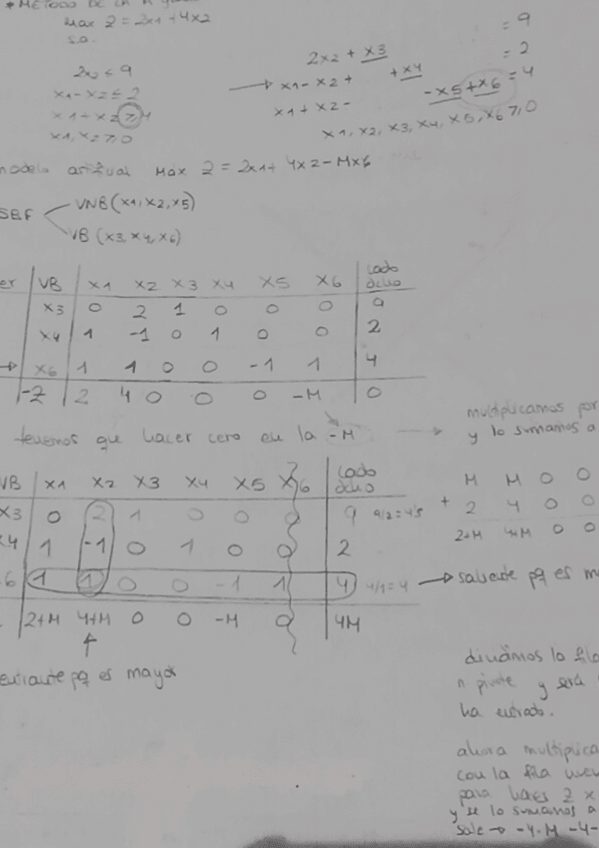 * MÉTODO DE LA M
Max Z = 2x1 + 4x2
s.a.
2x2 ≤ 9
x1 - x2 ≤ 2
x1 + x2 ≥ 4
x1, x2 ≥ 0
2x2 + x3 = 9
→ x1 - x2 + + x4 = 2
x1 + x2 - - x5 + x6 = 4
x1, x2, x3, x4, x5, x6 ≥ 0
modelo artificial Máx Z = 2x1 + 4x2 - Mx6
SBF VNB (x1, x2, x5)
VB (x3, x4, x6)
VB x1 x2 x3 x4 x5 x6 Lado dcho
x3 0 2 1 0 0 0 9
x4 1 -1 0 1 0 0 2
→ x6 1 1 0 0 -1 1 4
-Z 2 4 0 0 0 -M 0
tenemos que hacer cero en la -M → multiplicamos por
y lo sumamos a
VB x1 x2 x3 x4 x5 x6 Lado dcho
x3 0 2 1 0 0 0 9 9/2 = 4'5
x4 1 -1 0 1 0 0 2
6 1 1 0 0 -1 1 4 4/1 = 4 → saliente pq es
2+M 4+M 0 0 -M 0 4M
entrante pq es mayor
M M 0 0
+ 2 4 0 0
2+M 4+M 0 0
dividimos la fila
pivote y será
ha entrado.
ahora multiplica
con la fila
para
y se lo sumamos a
sale → -4-M -4-